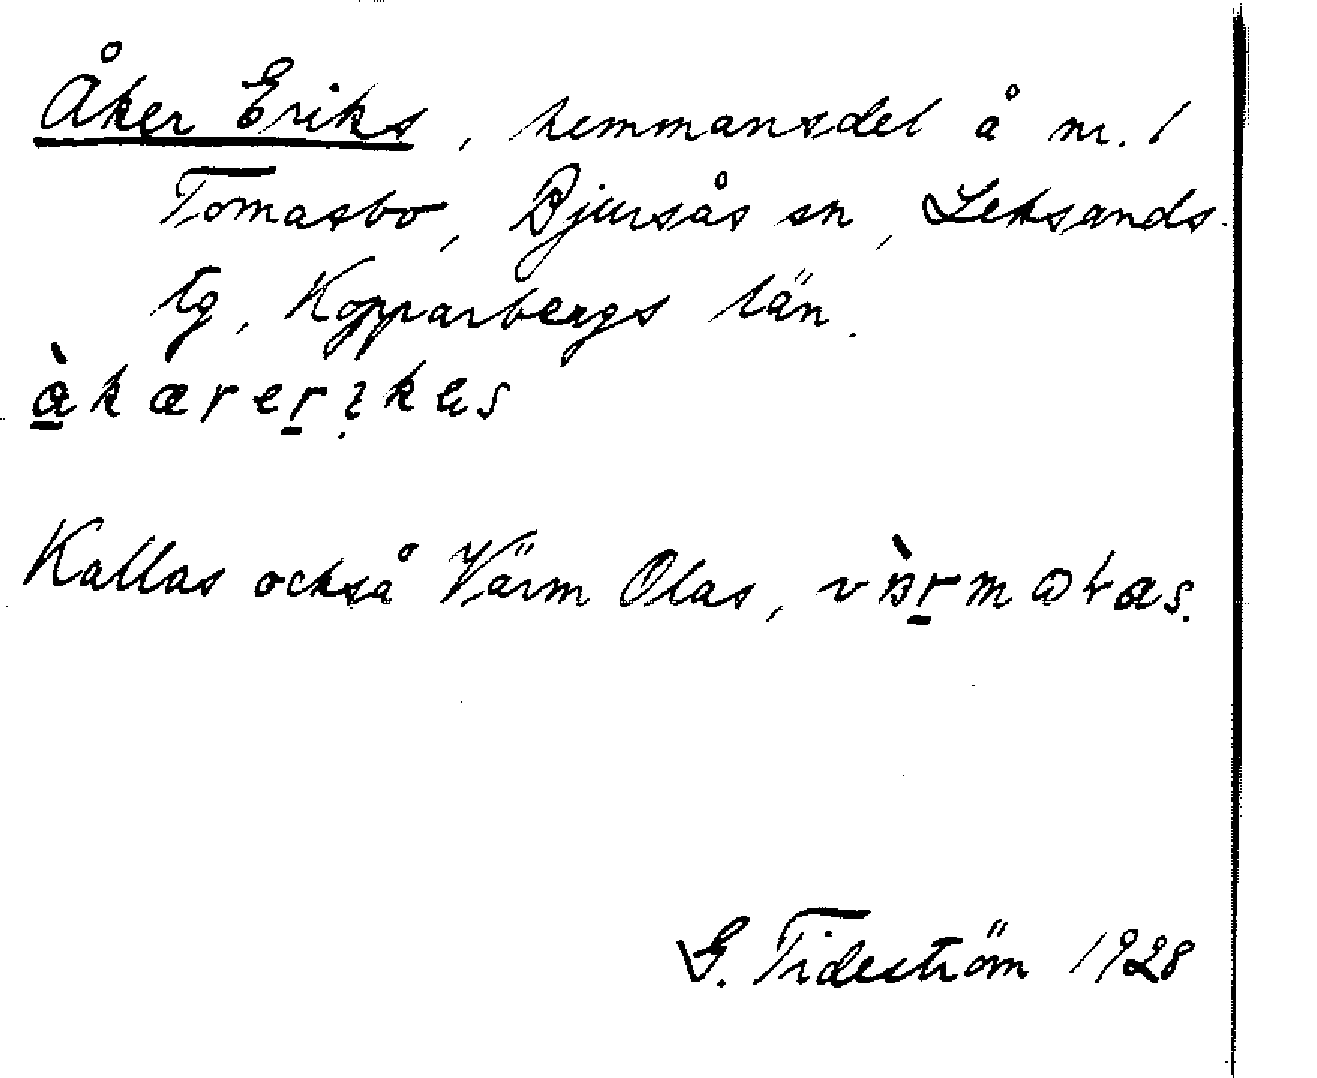 Åker Eriks, hemmansdel å nr. 1
Tomasbo, Bjursås sn, Leksands
tg, Kopparbergs län.
Kallas också Värm Olas,
G. Tideström 1928